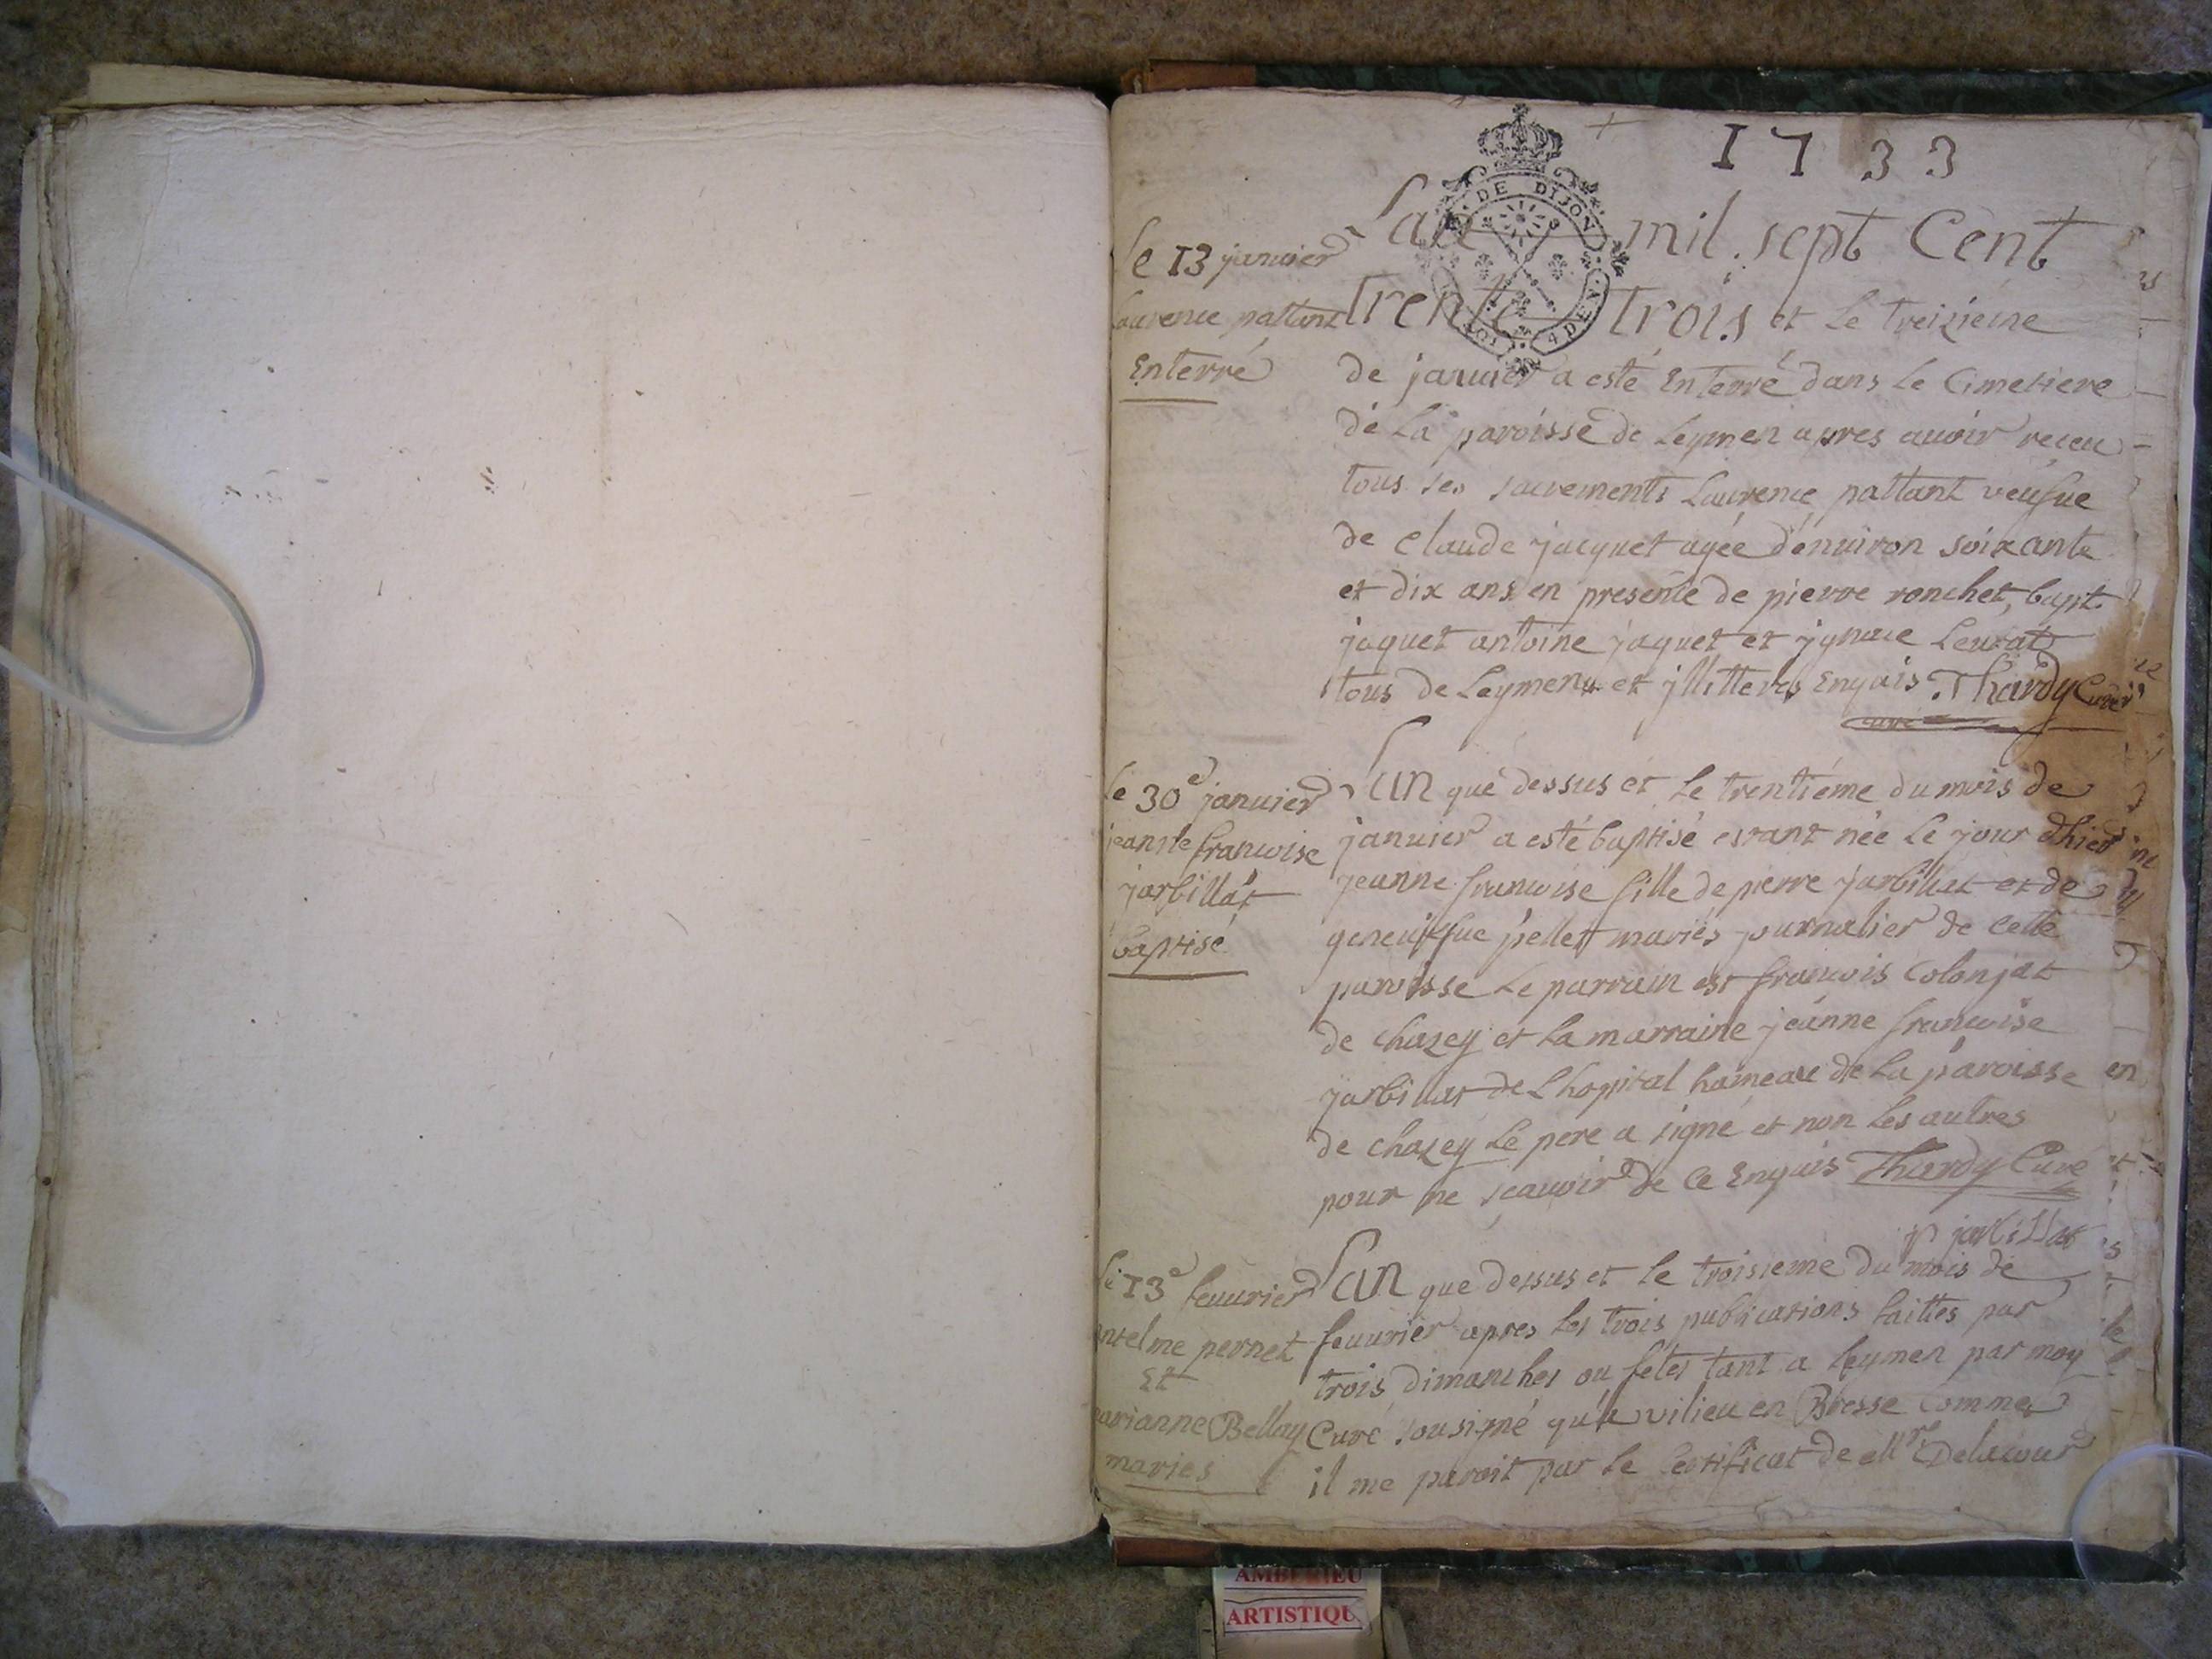 1733
DE DIJON
4 DEN
Lan mil sept Cent
Trente trois et Le treiziéme
de januier a esté Enterré dans Le Cimetiere
de La paroisse de Leymen apres auoir receu
tous ses sacrements Laurence pattant veufue
de Claude jacquet agée denuiron soixante
et dix ans en presence de pierre ronchet, bapt
jaquet antoine jaquet et jgnace Leurat
tous de Leymen et jllitteres Enquis Thardy Curé
curé
le 13 januier
Laurence pattant
Enterré
Lan que dessus et Le trentiéme du mois de
januier a esté baptisé estant née Le jour dhier
jeanne francoise fille de pierre jarbillat et de
geneuifue pellet mariés journalier de Cette
paroisse Le parrain est francois Colonjat
de chazey et La marraine jeanne francoise
jarbillat de Lhopital hameau de La paroisse
de chazey Le pere a signé et non Les autres
pour ne scauoir de ce Enquis Thardy Curé
p jarbillat
le 30e januier
jeanne francoise
jarbillat
baptisé
Lan que dessus et le troisieme du mois de
feuurier apres les trois publications faittes par
trois dimanches ou fétes tant a Leymen par moy
Curé sousigné qu'a vilieu en Bresse Comme
il me paroit par le Certificat de Mre Delacour
le 13e feuurier
antelme pernet
Et
marianne Bellay
maries
AMBERIEU
ARTISTIQU